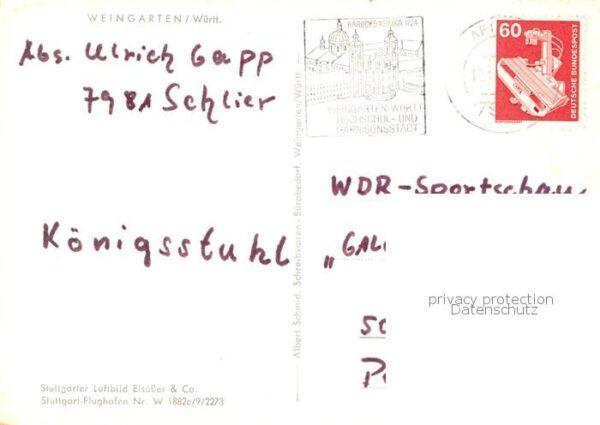 WEINGARTEN / Württ.
Abs. Ulrich Gapp
7981 Schlier
Königsstuhl
Stuttgarter Luftbild Elsäßer & Co.
Stuttgart-Flughafen Nr. W 1882c/9/2273
Albert Schmid, Schreibwaren · Bürobedarf, Weingarten/Württ.
BAROCKBASILIKA 1724
WEINGARTEN/WÜRTT
HOCHSCHUL- UND
GARNISONSSTADT
60
DEUTSCHE BUNDESPOST
WDR-Sportschau
„GAL
privacy protection
Datenschutz